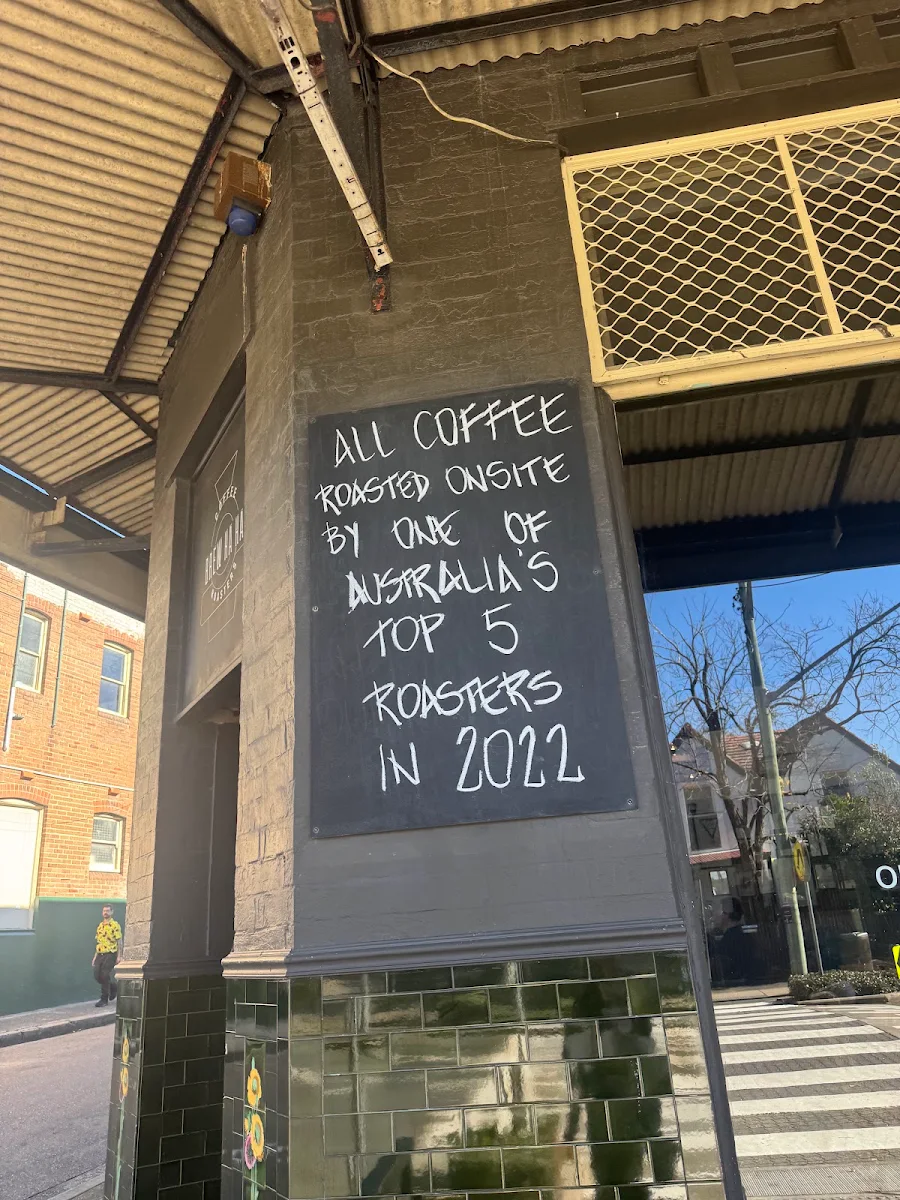 ALL COFFEE
ROASTED ONSITE
BY ONE OF
AUSTRALIA'S
TOP 5
ROASTERS
IN 2022
COFFEE
BREW HA HA
ROASTERS